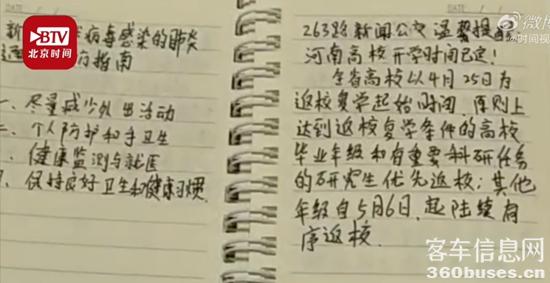 BTV
北京时间
微博
时间视
DATE
新 病毒感染的肺炎
指南
一、尽量减少外出活动
二、个人防护和手卫生
健康监测与就医
保持良好卫生和健康习惯
DATE
263路新闻公交温馨提
河南高校开学时间已定!
全省高校以4月25日为
返校复学起始时间,原则上
达到返校复学条件的高校
毕业年级和有重要科研任务
的研究生优先返校;其他
年级自5月6日,起陆续有
序返校.
客车信息网
360buses.cn